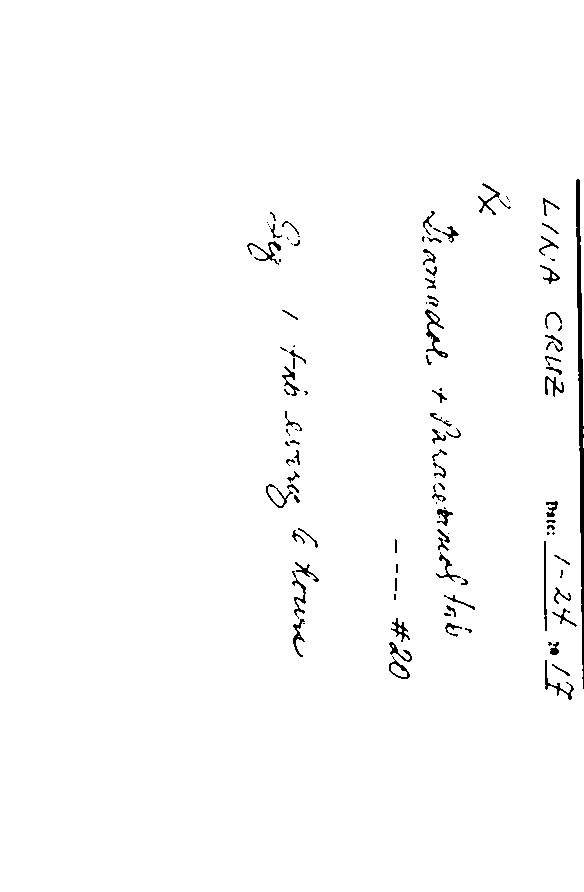 LINA CRUZ Date: 1-24 20 17
Rx
Tramadol + Paracetamol tab
---- #20
Sig 1 tab every 6 hours